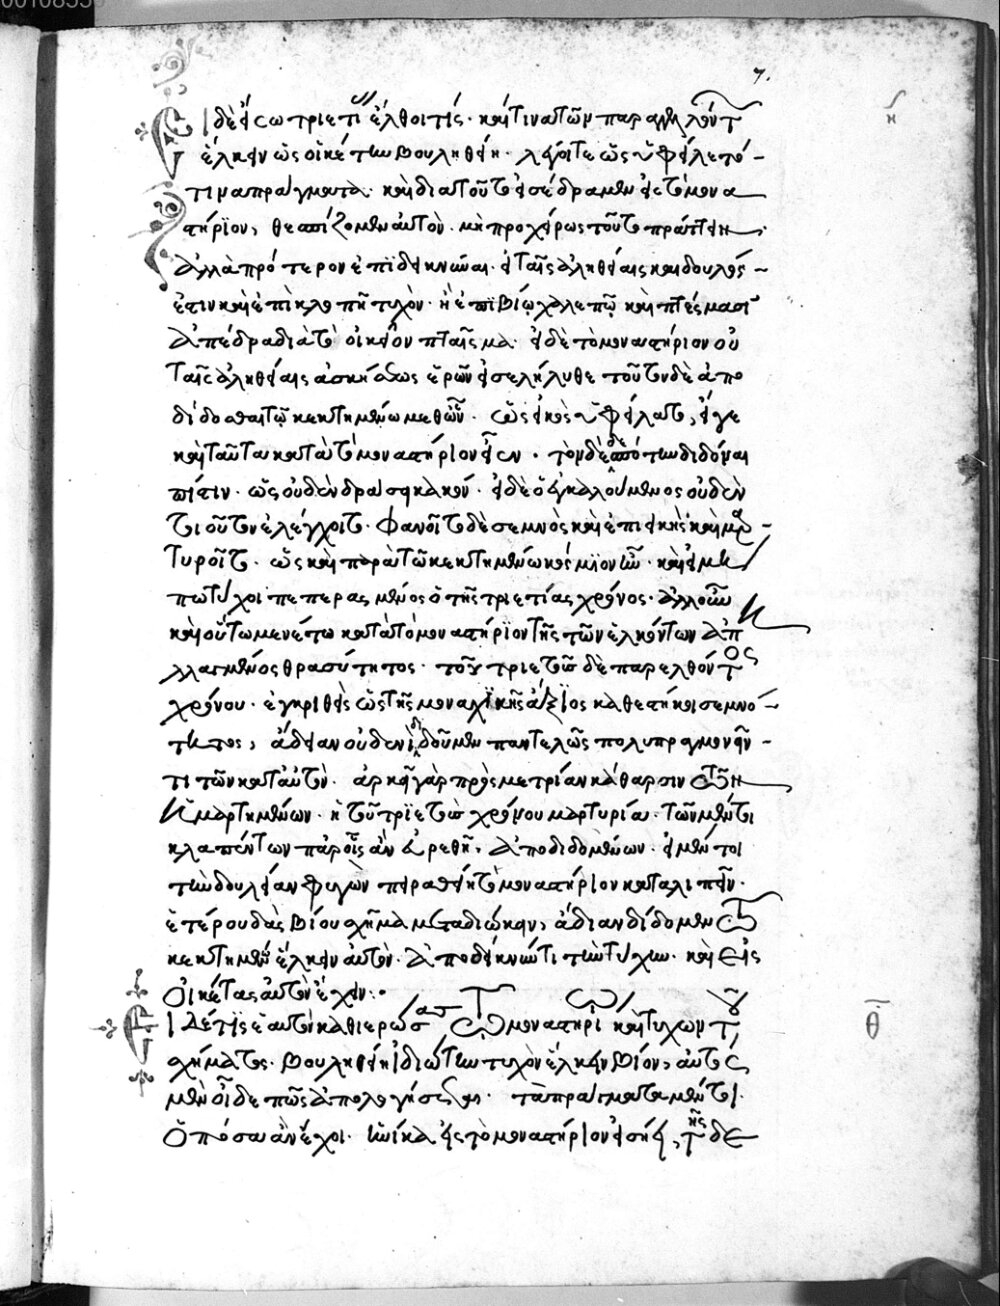 7.
Εἰ δὲ εἴσω τριετίας ἔλθοι τίς· καί τινα τῶν παρ' ἀλλήλων τ
ἕλκειν ὡς οἰκέτην βουληθείη· λέγοι τε ὡς ὑφείλετό
τινα πράγματα· καὶ διὰ τοῦτο εἰσέδραμεν εἰς τὸ μονα
στήριον, θεσπίζομεν αὐτὸν· μὴ προχείρως τοῦτο πράττειν·
ἀλλὰ πρότερον ἐπιδεικνύναι· εἰ ταῖς ἀληθείαις καὶ δοῦλός
ἐστιν καὶ ἐπὶ κλοπῇ τυχὸν· ἢ ἐπὶ βίῳ χαλεπῷ καὶ πταίσμασι
ἀπέδρα διὰ τὸ οἰκεῖον πταῖσμα· εἰς δὲ τὸ μοναστήριον οὐ
ταῖς ἀληθείαις ἀσκήσεως ἐρῶν εἰσελήλυθε τοῦτον δὲ ἀπο
δίδοσθαι τῷ κεκτημένῳ μεθ' ὧν· ὡς εἰκὸς ὑφείλατο, εἴγε
καὶ ταῦτα κατὰ τὸ μοναστήριον εἴσιν· τὸν δὲ ἀπὸ τὴν διδόναι
πίστιν· ὡς οὐδὲν δράσῃ κακόν· εἰ δὲ ὁ ἐγκαλούμενος οὐδὲν
τιοῦτον ἐλέγχοιτο· φανοῖτο δὲ σεμνὸς καὶ ἐπιεικὴς καὶ μαρ
τυροῖτο· ὡς καὶ παρὰ τῷ κεκτημένῳ κόσμιον ὢν· καὶ εἰ μή
πω τύχοι πεπερασμένος ὁ τῆς τριετίας χρόνος· ἀλλ' οὖν
καὶ οὕτω μενέτω κατὰ τὸ μοναστήριον τῆς τῶν ἑλκόντων ἀπ
λλαγμένος θρασύτητος· τοῦ τριετοῦς δὲ παρελθόντος
χρόνου· ἐγκριθεὶς ὡς τῆς μοναχικῆς ἄξιος καθεστήκοι σεμνό
τητος, ἄδειαν οὐδενὶ δίδομεν παντελῶς πολυπραγμονεῖν
τι τῶν κατ' αὐτὸν· ἀρκεῖ γὰρ πρὸς μετρίαν κάθαρσιν τῶν
ἡμαρτημένων· ἡ τοῦ τριετοῦς χρόνου μαρτυρία· τῶν μέντοι
κλαπέντων παρ' οἷς ἂν εὑρεθῇ, ἀποδιδομένων· εἰ μέντοι
τὴν δουλείαν φυγὼν πειραθείη τὸ μοναστήριον καταλιπεῖν·
ἑτέρου δὲ βίου σχῆμα μεταδιώκειν, ἄδειαν δίδομεν τῷ
κεκτημένῳ ἕλκειν αὐτὸν· ἀποδεικνύντι τὴν τύχην· καὶ εἰς
οἰκέτας αὐτὸν ἔχειν:·
Εἰ δέ τις ἑαυτὸν καθιερώσας τῷ μοναστηρίῳ καὶ τυχὼν τοῦ
σχήματος· βουληθείη ἰδιώτην τυχὸν ἕλκειν βίον, αὐτὸς
μὲν οἶδε πῶς ἀπολογήσεται· τὰ πράγματα μέντοι
ὁπόσα ἂν ἔχοι· ἡνίκα εἰς τὸ μοναστήριον εἰσῄει, τῆς δε
η
θ